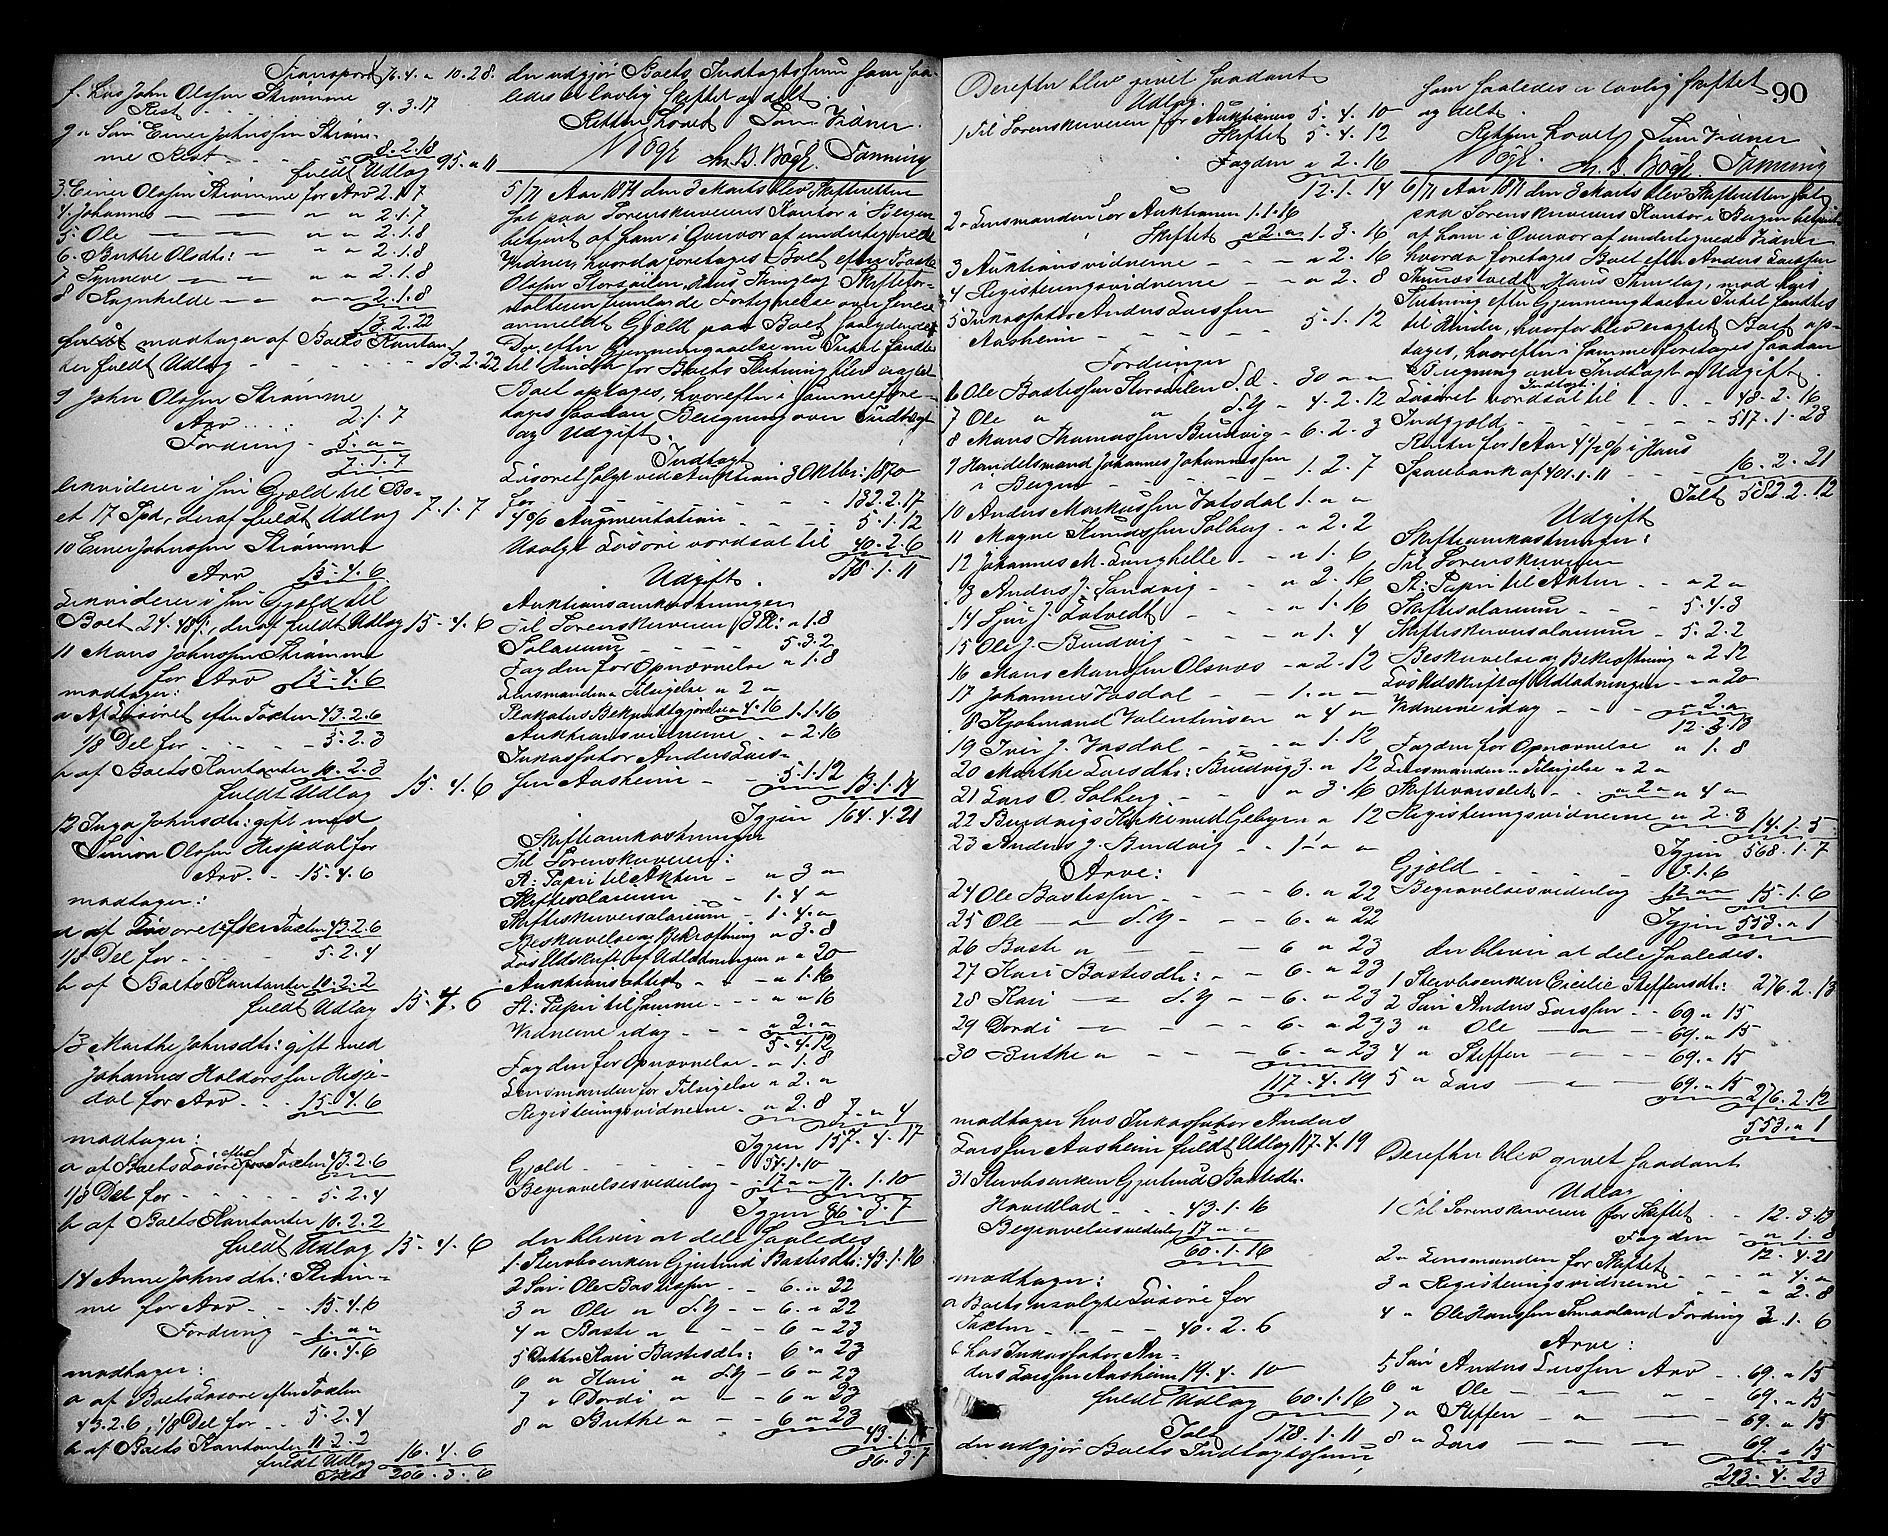 Transport 76.4. " 10.28.
f. hos John Olssen Strømme
Rest - - - - 9.3.17
g " Søn Einer Johnssen Strøm-
me Rest - - - 8.2.18
fuldt Udlæg 95. " 11
3. Einer Olssen Strømme for Arv 2.1.7
4. Johannes — — " " 2.1.7
5 Ole — — " " 2.1.8
6. Berthe Olsdtr: — " " 2.1.8
7 Synneve — " " 2.1.8
8 Ragnhilde — " " 2.1.8
13.2.22
modtager af Boets Kontan-
ter fuldt Udlæg - - - - 13.2.22
9 John Olssen Strømme
Arv .... 2.1.7
Fordring - 5. " "
7.1.7
likviderer i sin Gjæld til Bo-
et 17 Spd, deraf fuldt Udlæg 7.1.7
10 Einer Johnssen Strømme
Arv 15.4.6
Likviderer i sin Gjæld til
Boet 24.48 ß, deraf fuldt Udlæg 15.4.6
11 Mons Johnssen Strømme
for Arv 15.4.6
modtager:
a Af Løsøret efter Taxten 43.2.6
1/8 Del for - - - - 5.2.3
b af Boets Kontanter 10.2.3
fuldt Udlæg 15.4.6
12 Inga Johnsdtr: gift med
Simon Olssen Hisjedal for
Arv - - 15.4.6
modtager:
a af Løsøret efter Taxten 43.2.6
1/8 Del for - - - 5.2.4
b af Boets Kontanter 10.2.2
fuldt Udlæg 15.4.6
13 Marthe Johnsdtr: gift med
Johannes Haldorssen Hisje-
dal for Arv - - 15.4.6
modtager:
a af Boets Løsøre efter Taxten 43.2.6
1/8 Del for - - - - 5.2.4
b af Boets Kontanter 10.2.2
fuldt Udlæg 15.4.6
14 Anne Johnsdtr: Strøm-
me for Arv - - 15.4.6
Fordring - 1. " "
16.4.6
modtager:
a af Boets Løsøre efter Taxten
43.2.6, 1/8 Del for - - 5.2.4
b af Boets Kontanter 11.2.2
fuldt Udlæg 16.4.6
Talt 206.3.6
der udgjør Boets Indtægtssum som saa-
ledes er lovlig skiftet og delt.
Retten hævet Som Vidner
N Bøgh. Chr. B. Bøgh. Tønning
5/71 Aar 1871 den 3 Marts blev Skifteretten
sat paa Sorenskriverens Kontor i Bergen
betjent af ham i Overvær af undertegnede
Vidner, hvorda foretoges Boet efter Baste
Olssen Storsæten, Hous Thinglag. Skiftefor-
valteren fremlagde Fortegnelse over
anmeldt Gjæld paa Boet saalydende
Da efter Gjennemgaaelse nu Intet fandtes
til Hinder for Boets Slutning blev eragtet
Boet optages, hvorefter i samme fore-
toges saadan Beregning over Indtægt
og Udgift.
Indtægt
Løsøret solgt ved Auktion 3 Oktbr: 1870
for - - - - 132.2.17
4 o/o Augmentation - - - 5.1.12
Usolgt Løsøre vordsat til 40.2.6
178.1.11
Udgift.
Auktionsomkostninger
Til Sorenskriveren " 1.8
Salarium - - - - 5.3.2
Fogden for Opnævnelse " 1.8
Lensmanden Tilsigelse " 2 "
Plakatens Bekjendtgjørelse " 4.16 1.1.16
Auktionsvidnerne - - " 2.16
Inkassator Anders Lars-
sen Aasheim - - 5.1.12 13.1.14
Igjen 164.4.21
Skifteomkostninger
Til Sorenskriveren:
St: Papir til Akten - " 3 "
Skiftesalarium - - 1.4 "
Skifteskriversalarium - 1.4. "
Beskrivelse og Bekræftning " 3.8
Løs Udskrift af Udlodningen " " 20
Auktionsattest - - - " 1.16
St: Papir til samme - - " " 16
Vidnerne idag - - - " 2. "
5.4.12
Fogden for Opnævnelse - " 1.8
Lensmanden for Tilsigelse " 2. "
Registeringsvidnerne - " 2.8 7. " 4
Igjen 157.4.17
Gjæld - - - - 54.1.10
Begravelsesvederlag - - 17 " " 71.1.10
Igjen 86.3.7
der bliver at dele saaledes
1. Sterbsenken Gjertrud Bastesdtr: 43.1.16
2 Søn Ole Bastessen - - 6. " 22
3 " Ole " d.y. - - 6. " 22
4 " Baste " - - - 6 " 23
5 Datter Kari Bastesdtr: 6 " 23
6 " Kari " d.y. - 6 " 23
7 " Dordi " - - 6 " 23
8 " Berthe " - - 6 " 23
43.1.
86.3.7
90
Derefter blev givet saadant
Udlæg:
1 Til Sorenskriveren for Auktionen 5.4.10
Skiftet 5.4.12
Fogden " 2.16
12.1.14
2 " Lensmanden for Auktionen 1.1.16
Skiftet " 2. " 1.3.16
3 Auktionsvidnerne - - - " 2.16
4 Registeringsvidnerne - - " 2.8
5 Inkassator Anders Larssen
Aasheim - - - - - 5.1.12
Fordringer
6 Ole Bastessen Storsæten d.æ. - 30 " "
7 Ole " " d.y. - 4.2.12
8 Mons Thomassen Bruvig - 6.2.3
9 Handelsmand Johannes Johannessen
i Bergen - - - - 1.2.7
10 Anders Markussen Vatsdal 1. " "
11 Magne Knudssen Solberg - " 2.2
12 Johannes M. Langhelle - - " 1.6
13 Anders J. Sandvig - - - " 2.16
14 Sjur J. Lotvedt - - - - " 1.16
15 Ole J. Bruvig - - - - " 1.4
16 Mons Monssen Olsnes - " 2.12
17 Johannes Vasdal - 1. " "
18 Kjøbmand Valentinsen " 4 "
19 Iver J. Vasdal - - - " 1.12
20 Marthe Larsdtr: Bruvig 3. " 12
21 Lars O. Solberg - - - " 3.16
22 Bruvigs Kirke med Gebyr " " 12
23 Anders J. Bruvig - - 1 " "
Arve:
24 Ole Bastessen - - - 6. " 22
25 Ole — " d.y. - - 6. " 22
26 Baste " - - - 6 " 23
27 Kari Bastesdtr: - - 6. " 23
28 Kari — d.y. - - 6. " 23
29 Dordi — - - - 6. " 23
30 Berthe " - - - 6. " 23
117.4.19
modtager hos Inkassator Anders
Larssen Aasheim fuldt Udlæg 117.4.19
31 Sterbsenken Gjertrud Bastesdtr:
Hovedlod - - 43.1.16
Begravelsesvederlag 17 " "
60.1.16
modtager:
a Boets usolgte Løsøre for
Taxten - - - - 40.2.6
b hos Inkassator An-
ders Larssen Aasheim 19.4.10
fuldt Udlæg 60.1.16
Talt 178.1.11
der udgjør Boets Indtægtssum,
som saaledes er lovlig skiftet
og delt.
Retten hævet Som Vidner
N Bøgh. Chr. B. Bøgh. Tønning
6/71 Aar 1871 den 3 Marts blev Skifteretten sat
paa Sorenskriverens Kontor i Bergen betjent
af ham i Overvær af undertegnede Vidner
hvorda foretoges Boet efter Anders Larssen
Hous Thinglag, mod hvis
Slutning efter Gjennemgaaelse Intet fandtes
til Hinder, hvorfor blev eragtet Boet op-
tages, hvorefter i samme foretoges saadan
Beregning over Indtægt og Udgift.
Indtægt
Løsøret vordsat til - - - 48.2.16
Indgjæld - - - - - 517.1.23
Renter for 1 Aar 4 1/2 o/o i Hous
Sparebank af 401.1.11 - - 16.2.21
Talt 582.2.12
Udgift
Skifteomkostninger:
Til Sorenskriveren
St: Papir til Akten - - " 2 "
Skiftesalarium - - - 5.4.3
Skifteskriversalarium - 5.2.2
Beskrivelse og Bekræftning " 2.12
Løs Udskrift af Udlodningen - " " 20
Vidnerne idag - - - " 2. "
12.3.13
Fogden for Opnævnelse " 1.8
Lensmanden " Tilsigelse " 2 "
Skiftevarselet - - " 2 " " 4 "
Registeringsvidnerne " 2.8 14.1.5
Igjen 568.1.7
Gjæld - - - 3.1.6
Begravelsesvederlag 12 " " 15.1.6
Igjen 553. " 1
der bliver at dele saaledes.
1 Sterbsenken Cicilie Steffensdtr: 276.2.13
2 Søn Anders Larssen - - 69 " 15
3 " Ole — " — 69. " 15
4 " Steffen — " — 69. " 15
5 " Lars — " — 69. " 15
276.2.12
553. " 1
Derefter blev givet saadant
Udlæg
1 Til Sorenskriveren for Skiftet - - 12.3.13
Fogden - " 1.8
12.4.21
2 " Lensmanden for Skiftet - - " 4. "
3 " Registeringsvidnerne - - " 2.8
4 " Ole Hanssen Smaaland Fordring 3.1.6
Arve:
5 Søn Anders Larssen Arv - 69. " 15
6 " Ole — " — 69. " 15
7 " Steffen — " — 69. " 15
8 " Lars — — — 69. " 15
293.4.23